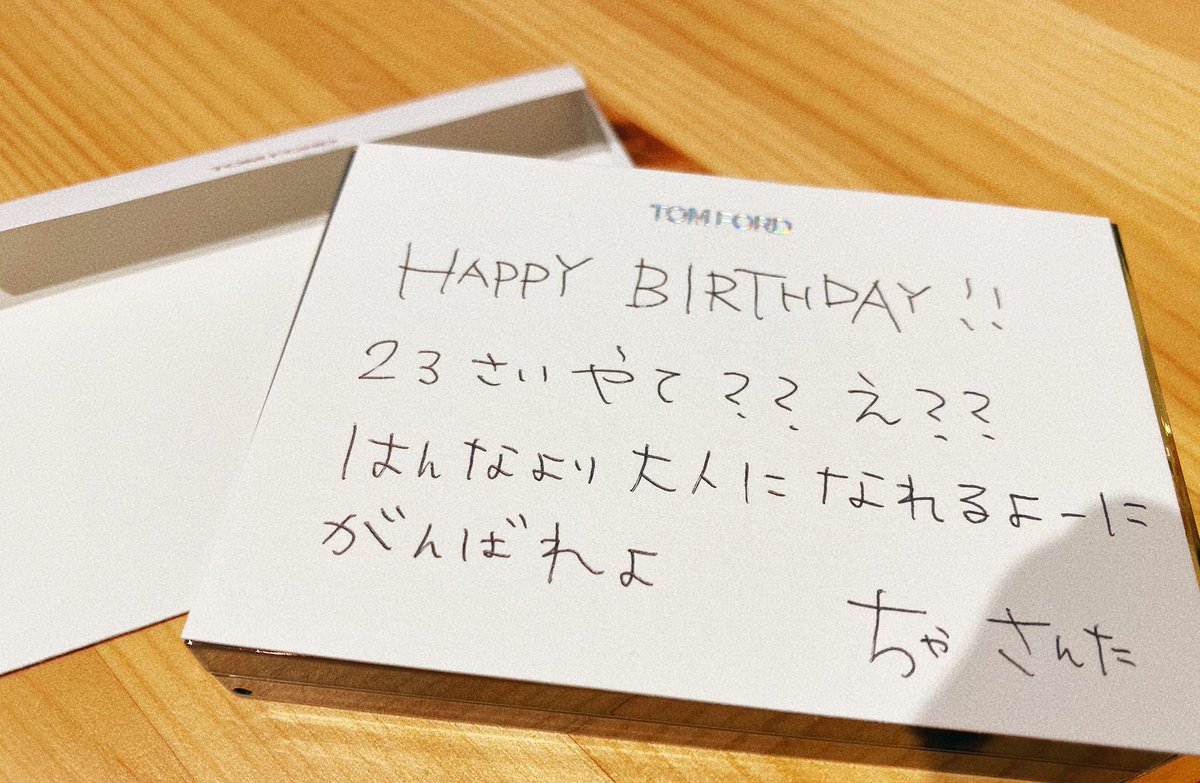 TOM FORD
HAPPY BIRTHDAY!!
23さいやて?? え??
はんなより大人になれるよーに
がんばれよ
ちゃさんた